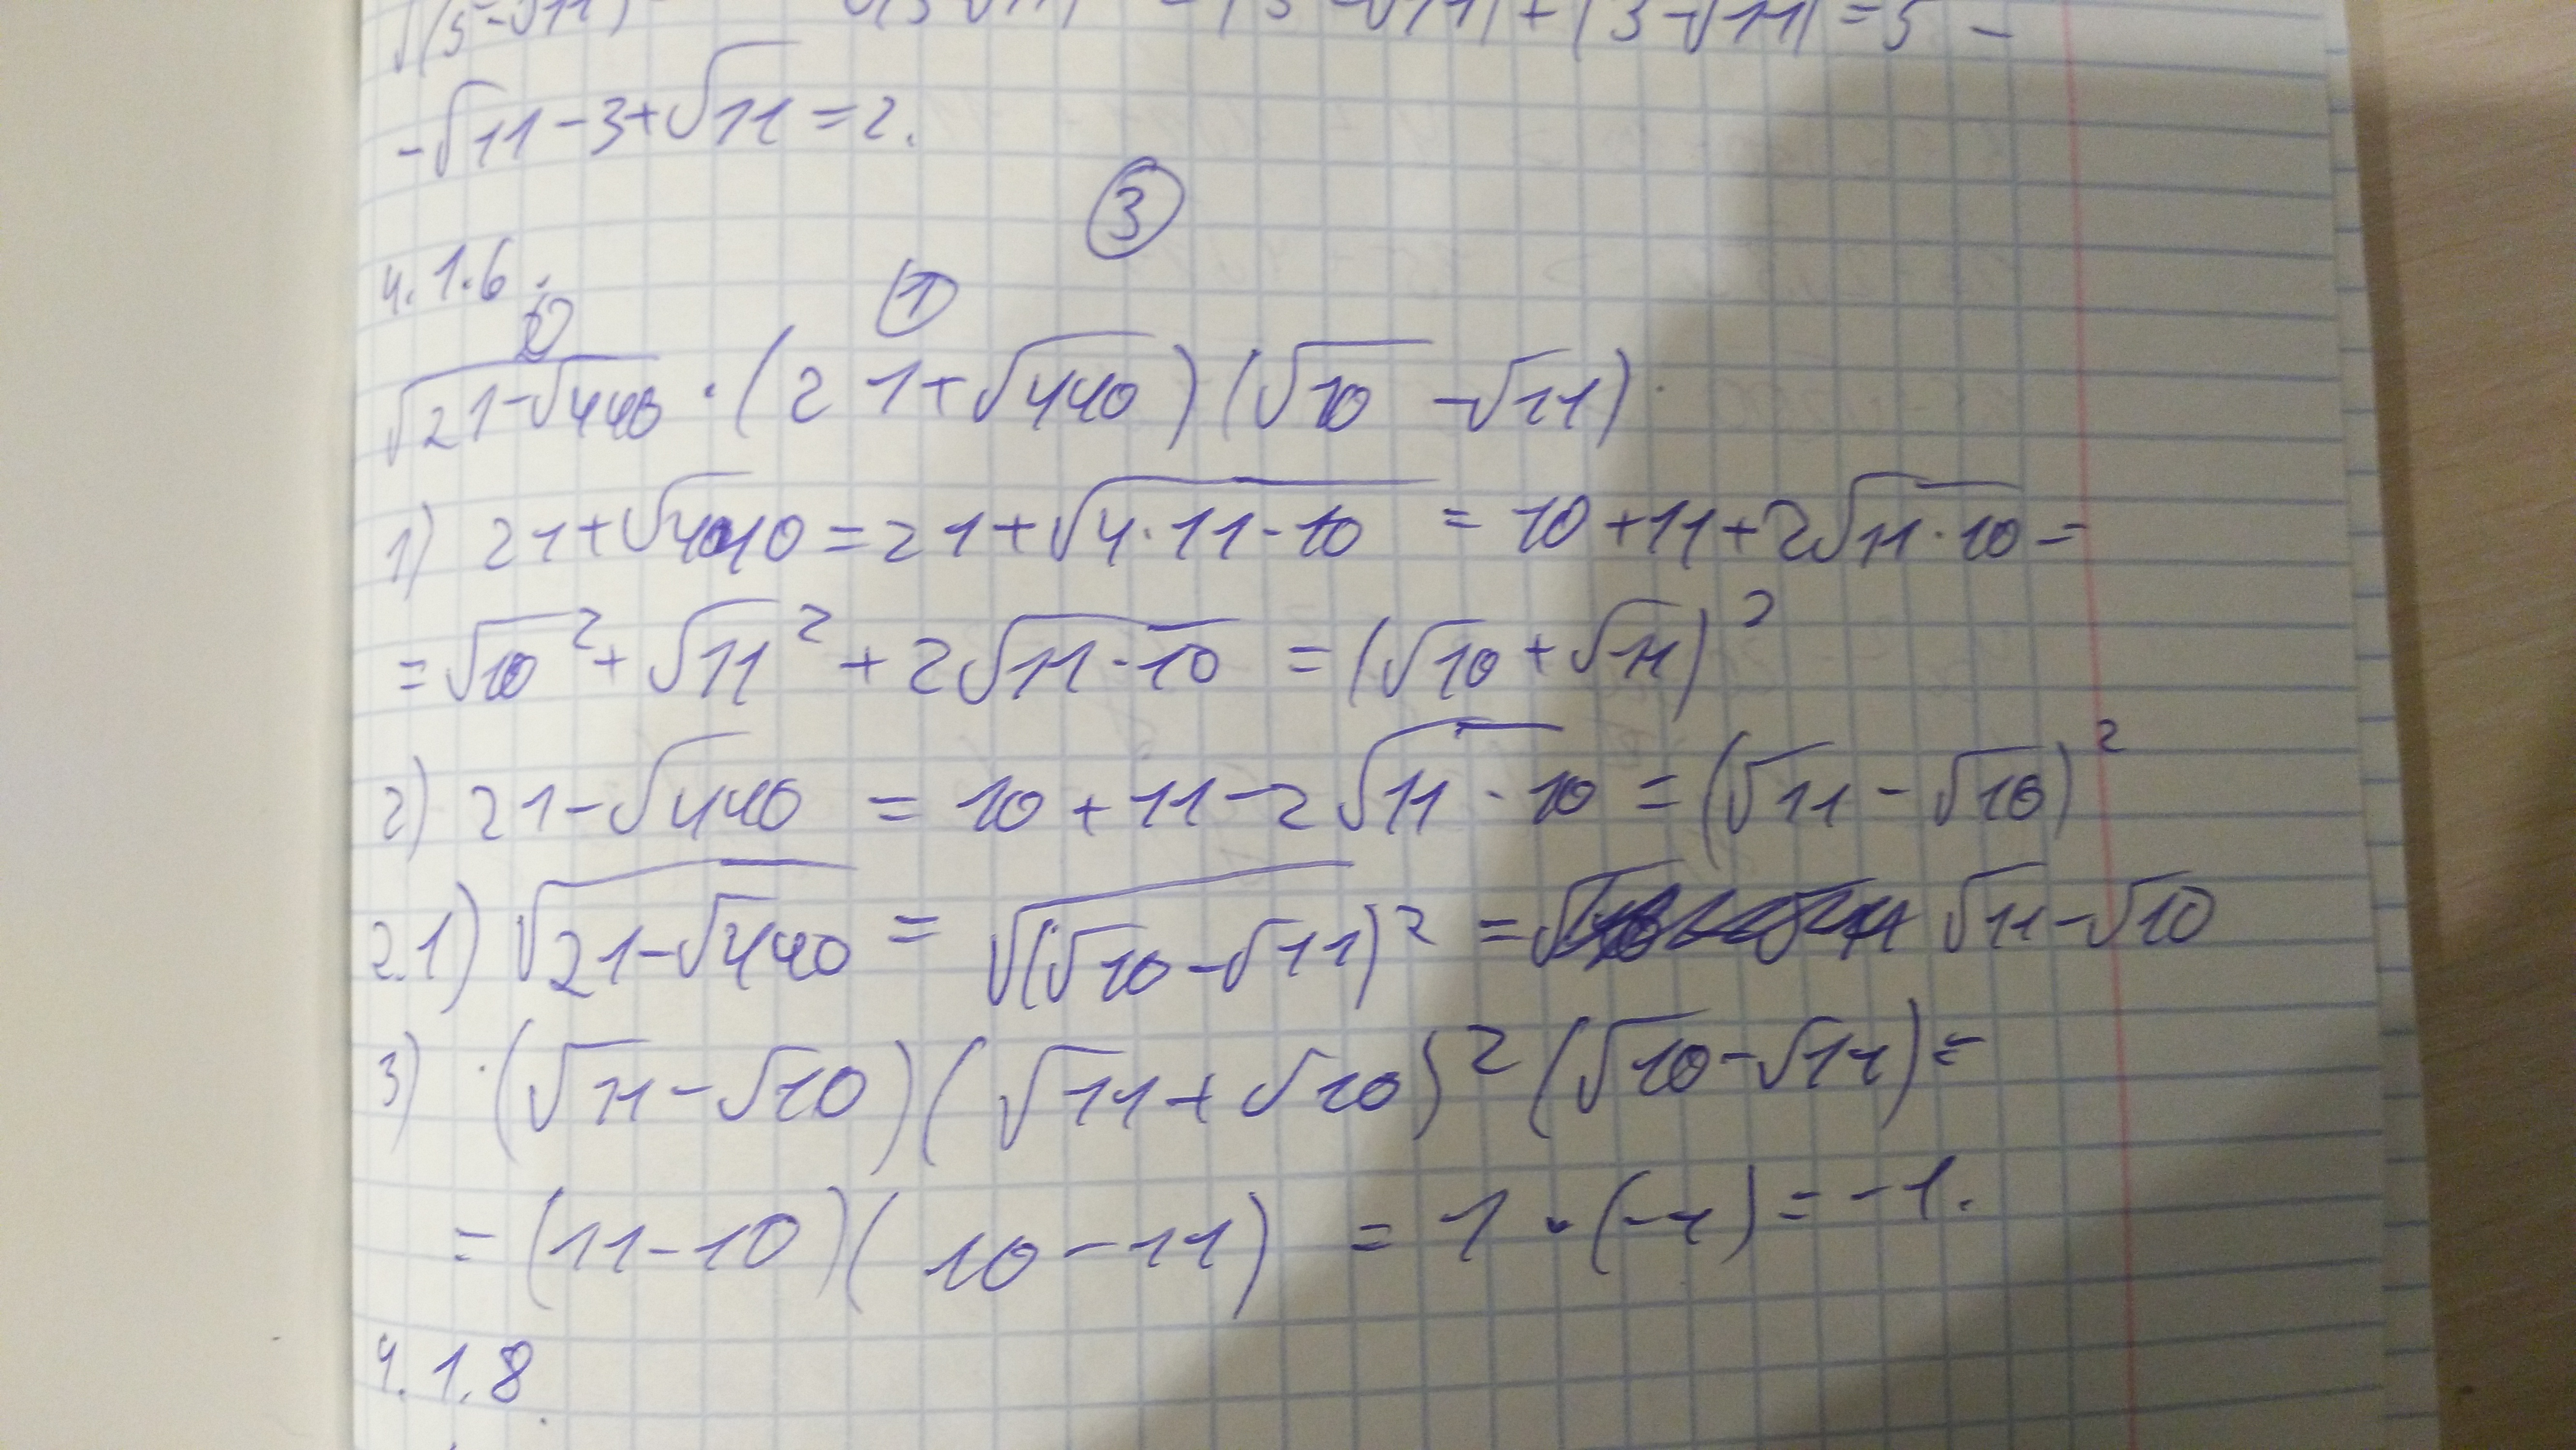 √(5-√11) √(3-√11) = |5-√11| + |3-√11| = 5 -
-√11 - 3 + √11 = 2.
3
4.1.6.
2 1
√(21-√440) · (21+√440)(√10 - √11).
1) 21+√440 = 21+√(4·11·10) = 10+11+2√(11·10) =
= √10² + √11² + 2√(11·10) = (√10+√11)²
2) 21-√440 = 10+11-2√(11·10) = (√11-√10)²
2.1) √(21-√440) = √((√10-√11)²) = √11-√10
3) (√11-√10)(√11+√10)²(√10-√11) =
= (11-10)(10-11) = 1·(-1) = -1.
4.1.8